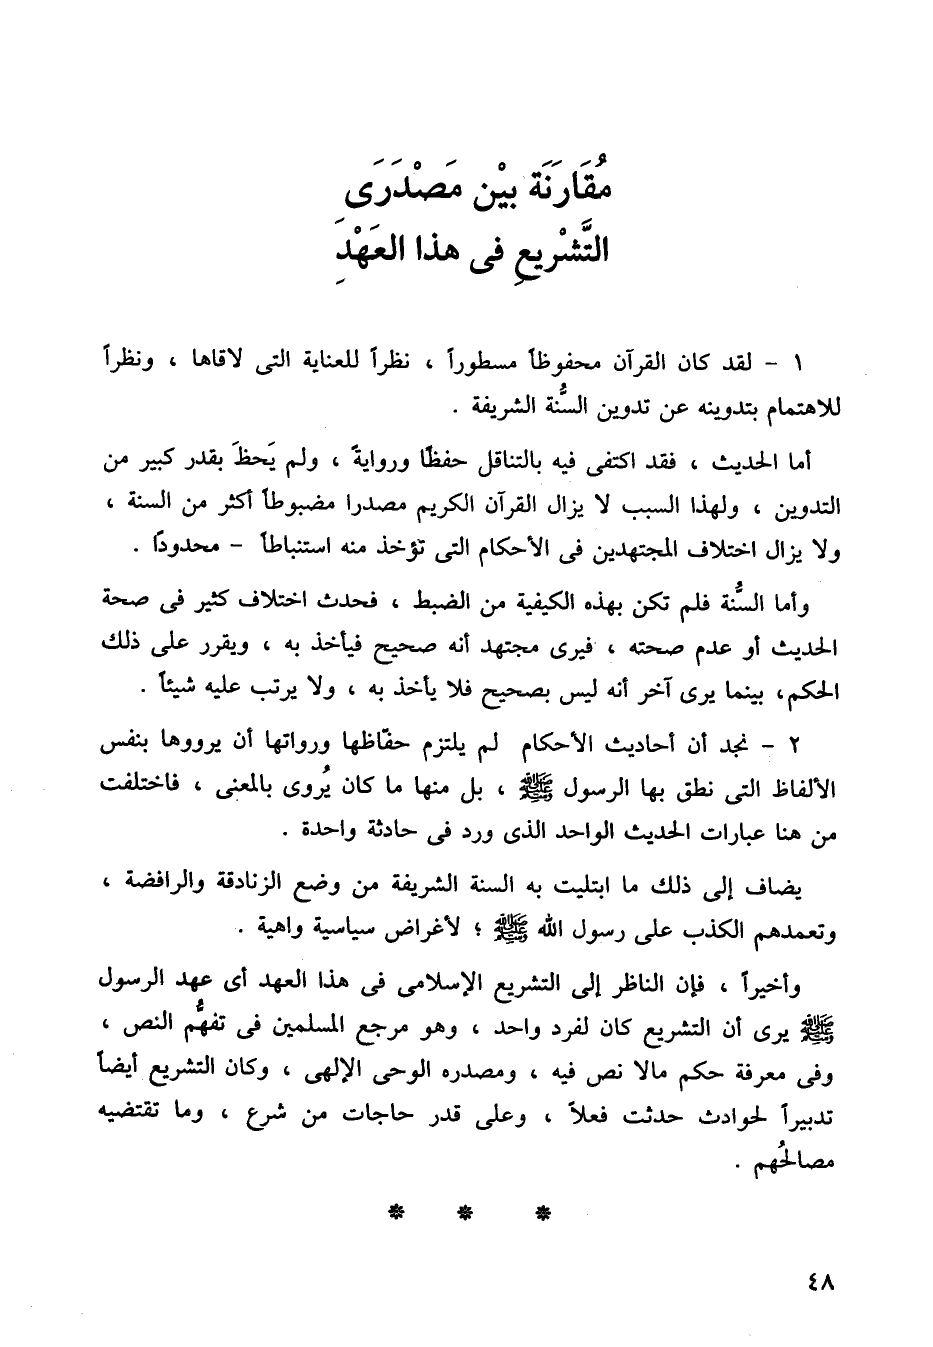 مُقَارَنَة بيْن مَصْدَرَى
التَّشْريعِ فى هذا العَهْدِ
١ - لقد كان القرآن محفوظاً مسطوراً ، نظراً للعناية التى لاقاها ، ونظراً
للاهتمام بتدوينه عن تدوين السُّنة الشريفة .
أما الحديث ، فقد اكتفى فيه بالتناقل حفظًا وروايةً ، ولم يَحظَ بقدر كبير من
التدوين ، ولهذا السبب لا يزال القرآن الكريم مصدرا مضبوطاً أكثر من السنة ،
ولا يزال اختلاف المجتهدين فى الأحكام التى تؤخذ منه استنباطاً - محدودًا .
وأما السُّنة فلم تكن بهذه الكيفية من الضبط ، فحدث اختلاف كثير فى صحة
الحديث أو عدم صحته ، فيرى مجتهد أنه صحيح فيأخذ به ، ويقرر على ذلك
الحكم، بينما يرى آخر أنه ليس بصحيح فلا يأخذ به ، ولا يرتب عليه شيئاً .
٢ - نجد أن أحاديث الأحكام لم يلتزم حفّاظها ورواتها أن يرووها بنفس
الألفاظ التى نطق بها الرسول ﷺ ، بل منها ما كان يُروى بالمعنى ، فاختلفت
من هنا عبارات الحديث الواحد الذى ورد فى حادثة واحدة .
يضاف إلى ذلك ما ابتليت به السنة الشريفة من وضع الزنادقة والرافضة ،
وتعمدهم الكذب على رسول الله ﷺ ؛ لأغراض سياسية واهية .
وأخيراً ، فإن الناظر إلى التشريع الإسلامى فى هذا العهد أى عهد الرسول
ﷺ يرى أن التشريع كان لفرد واحد ، وهو مرجع المسلمين فى تفهُّم النص ،
وفى معرفة حكم مالا نص فيه ، ومصدره الوحى الإلهى ، وكان التشريع أيضاً
تدبيراً لحوادث حدثت فعلاً ، وعلى قدر حاجات من شرع ، وما تقتضيه
مصالحُهم .
* * *
٤٨